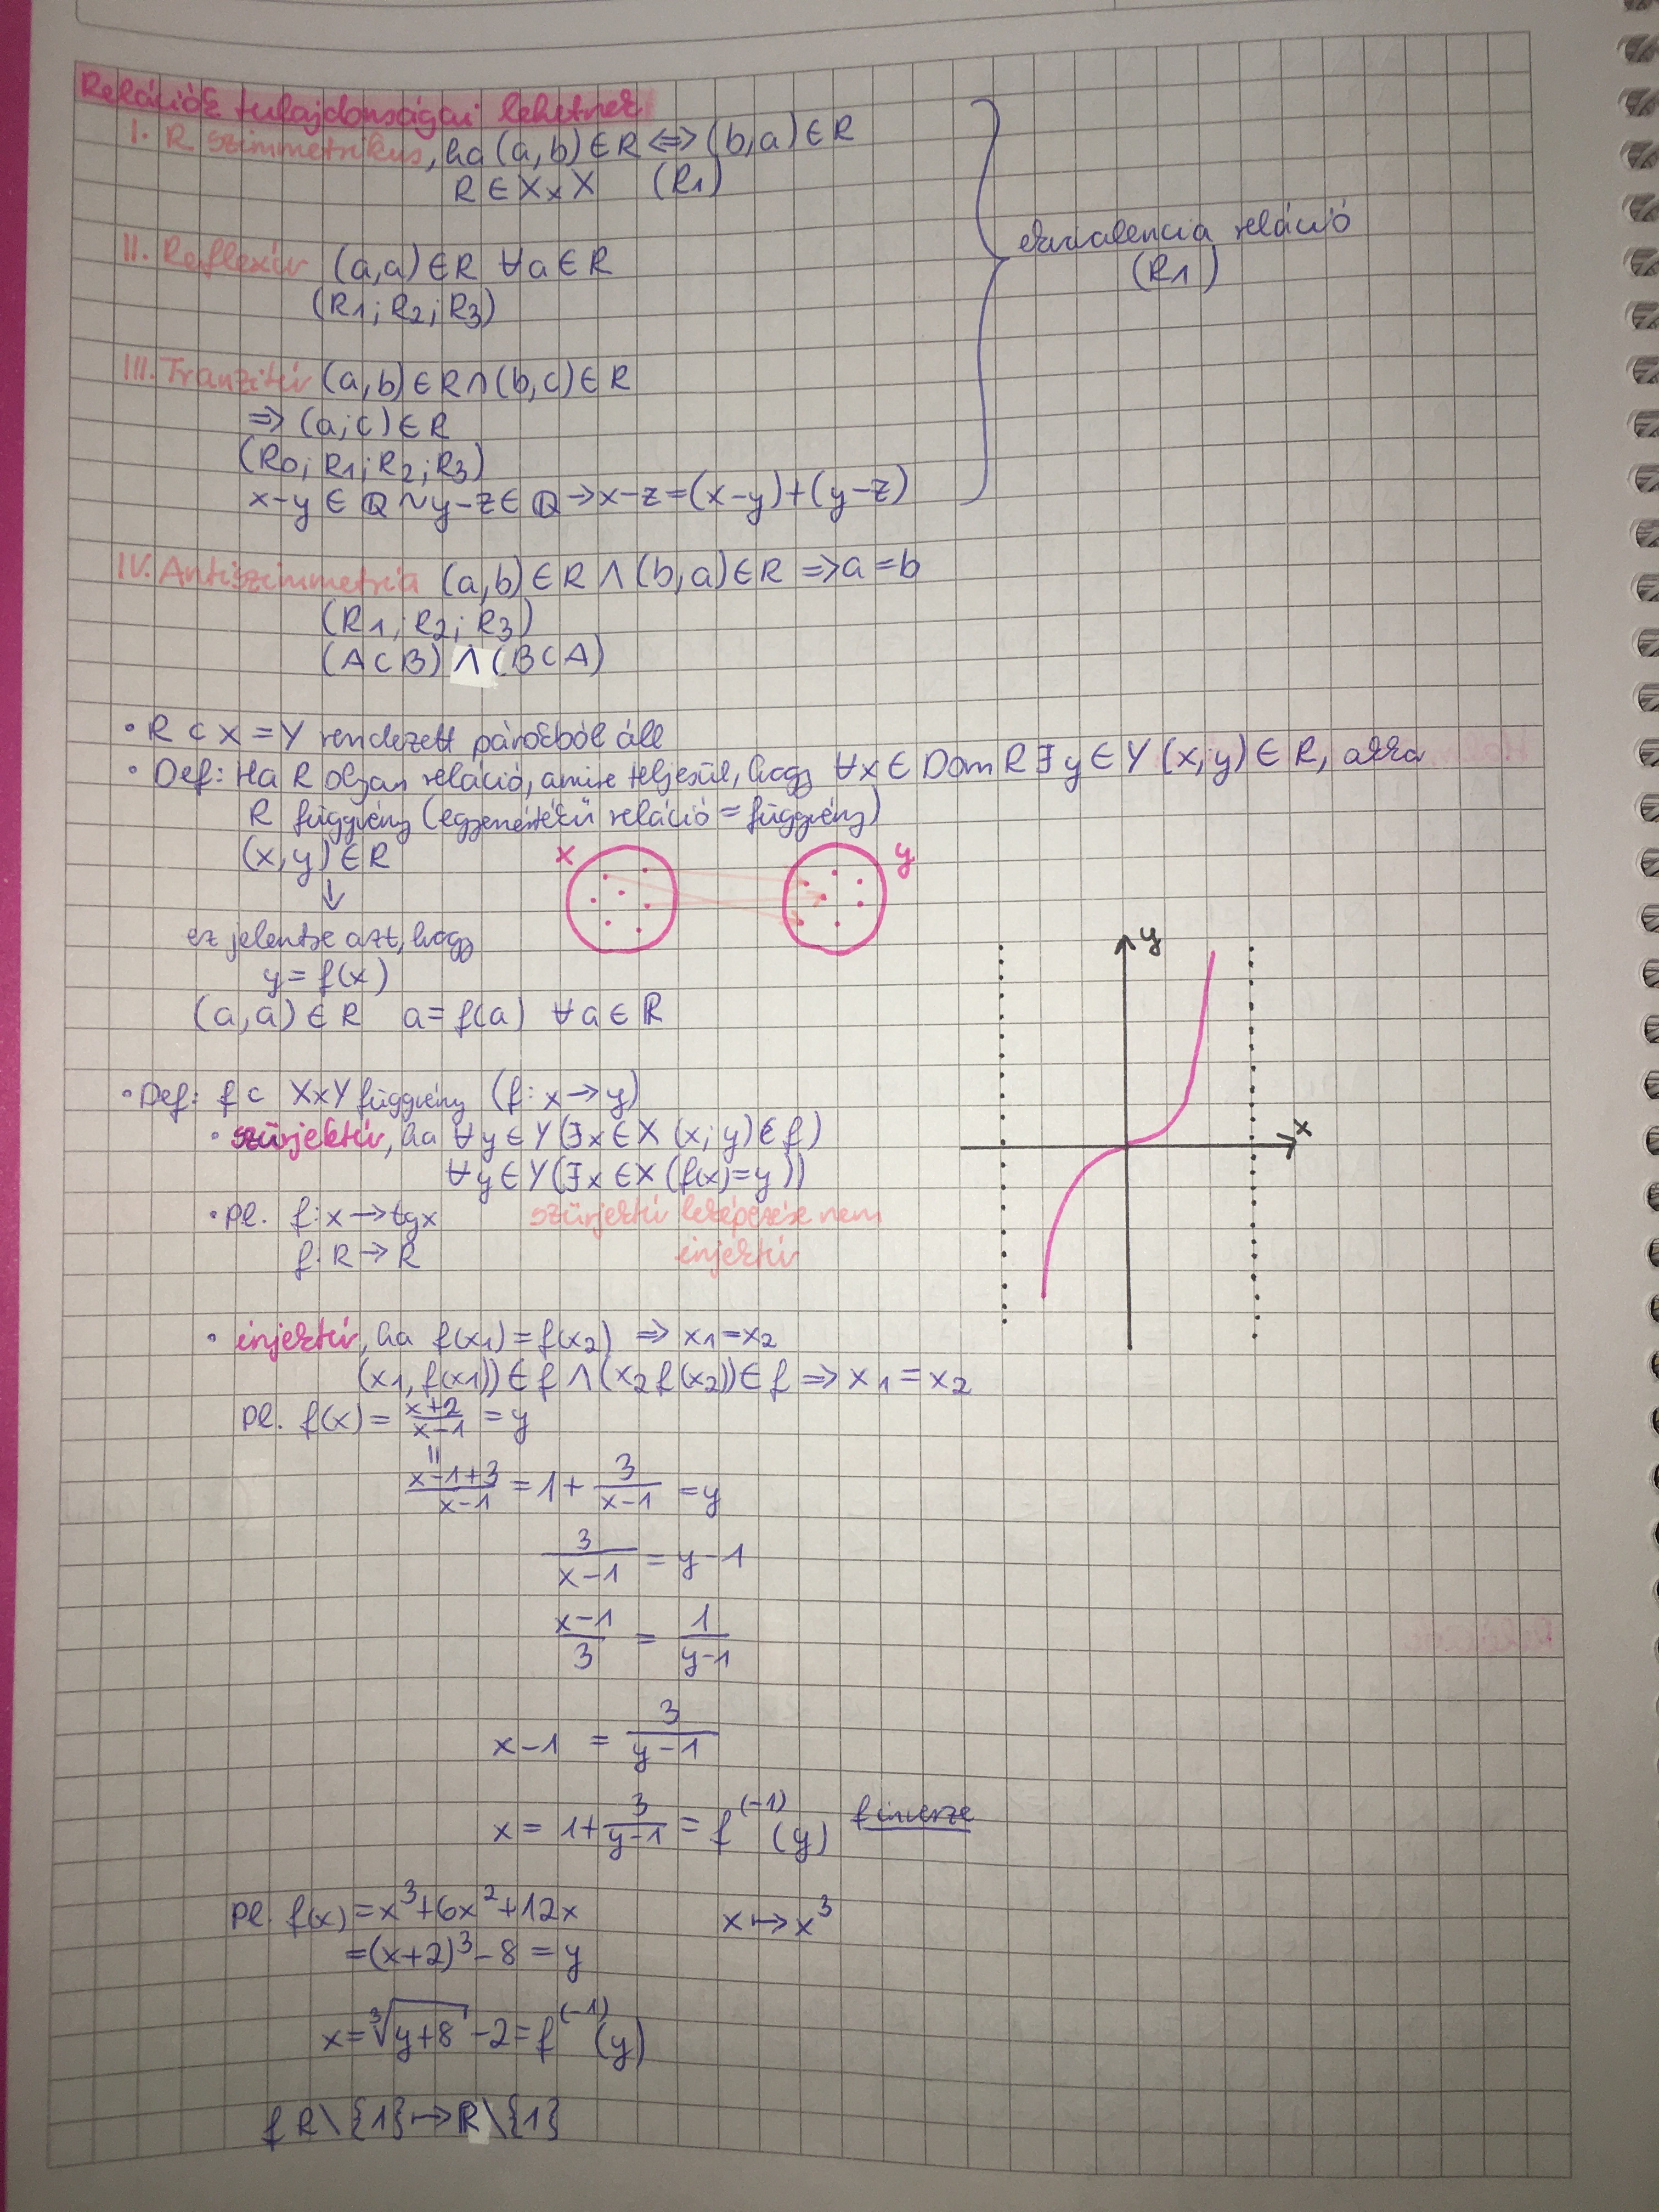 Relációk tulajdonságai lehetnek
I. R szimmetrikus, ha (a,b) ∈ R ⟺ (b,a) ∈ R
R ∈ X×X (R1)
ekvivalencia reláció
(R1)
II. Reflexív (a,a) ∈ R ∀a ∈ R
(R1; R2; R3)
III. Tranzitív (a,b) ∈ R ∧ (b,c) ∈ R
⇒ (a;c) ∈ R
(R0; R1; R2; R3)
x-y ∈ ℚ ~ y-z ∈ ℚ → x-z = (x-y)+(y-z)
IV. Antiszimmetria (a,b) ∈ R ∧ (b,a) ∈ R ⇒ a=b
(R1; R2; R3)
(A⊂B) ∧ (B⊂A)
• R ⊂ X = Y rendezett párokból áll
• Def: Ha R olyan reláció, amire teljesül, hogy ∀x ∈ Dom R ∃ y ∈ Y (x;y) ∈ R, akko
R függvény (egyenértékű reláció = függvény)
(x,y) ∈ R
x y
↓
ez jelentse azt, hogy
y = f(x)
(a,a) ∈ R a = f(a) ∀a ∈ ℝ
y
x
• Def: f ⊂ X×Y függvény (f: x → y)
• szürjektív, ha ∀y ∈ Y (∃x ∈ X (x;y) ∈ f)
∀y ∈ Y (∃x ∈ X (f(x)=y))
• pl. f: x → tgx szürjektív leképezése nem
f: R → R injektív
• injektív, ha f(x1) = f(x2) ⇒ x1 = x2
(x1, f(x1)) ∈ f ∧ (x2 f(x2)) ∈ f ⇒ x1 = x2
pl. f(x) = (x+2)/(x-1) = y
=
(x-1+3)/(x-1) = 1 + 3/(x-1) = y
3/(x-1) = y-1
(x-1)/3 = 1/(y-1)
x-1 = 3/(y-1)
x = 1 + 3/(y-1) = f^(-1) (y) f inverze
pl. f(x) = x³+6x²+12x x ↦ x³
= (x+2)³ - 8 = y
x = ∛(y+8) - 2 = f^(-1) (y)
f R\{1} ↦ ℝ\{1}